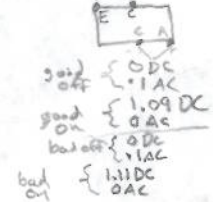 E C
C A
good off { 0 DC
.1 AC
good on { 1.09 DC
0 AC
bad off { 0 DC
.1 AC
bad on { 1.11 DC
0 AC